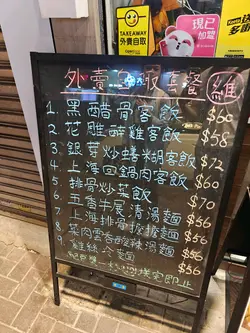 TAKEAWAY
外賣自取
現已
加盟
外賣 級套餐 維
1. 黑醋骨客飯 $60
2. 花雕醉雞客飯 $58
3. 銀芽炒鱔糊客飯 $72
4. 上海回鍋肉客飯 $60
5. 排骨炒菜飯 $70
6. 五香牛展清湯麵 $56
7. 上海排骨擔擔麵 $56
8. 菜肉雲吞酸辣湯麵 $56
9. 雞絲冷麵 $56
送完即止